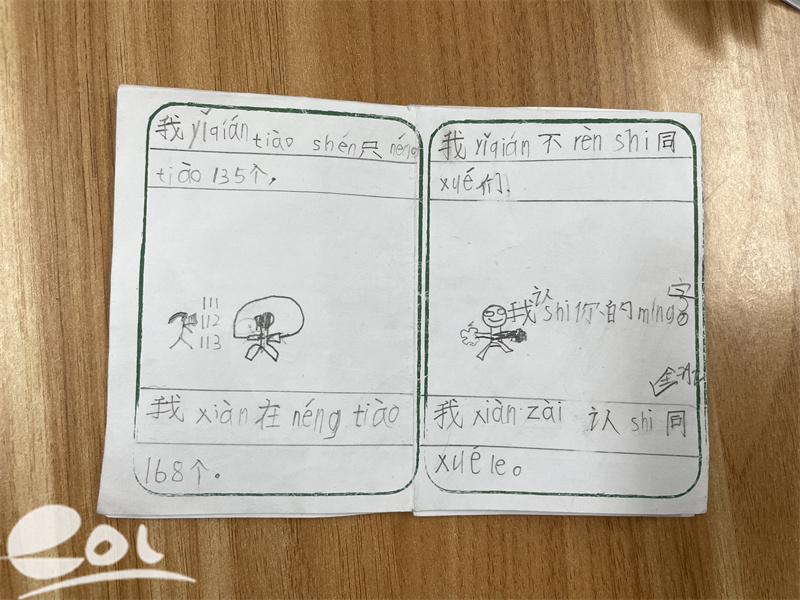 我 yǐqián tiào shén 只 néng
tiào 135个,
111
112
113
我 xiàn 在 néng tiào
168个。
我 yǐqián 不 rèn shi 同
xué 们.
我认shi你的míng字
我 xiàn zài 认 shi 同
xué le。
eol